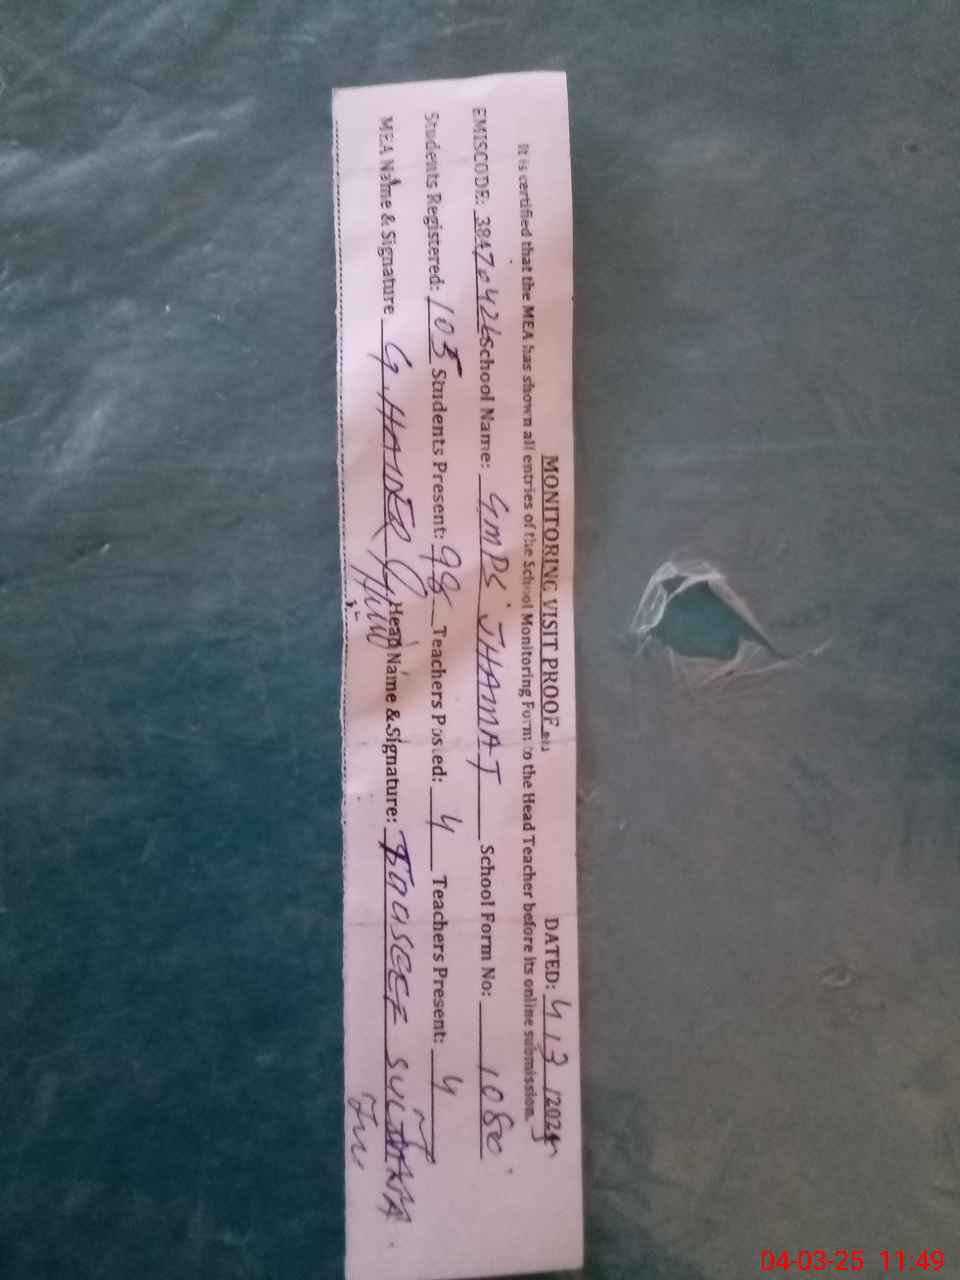 MONITORING VISIT PROOF DATED: 4/3/2025
It is certified that the MEA has shown all entries of the School Monitoring Form to the Head Teacher before its online submission.
EMISCODE: 38470426 School Name: GMPS JHAMAT School Form No: 1080
Students Registered: 105 Students Present: 98 Teachers Posted: 4 Teachers Present: 4
MEA Name & Signature G. HAIDER Head Name & Signature: SULTANA
04-03-25 11:49